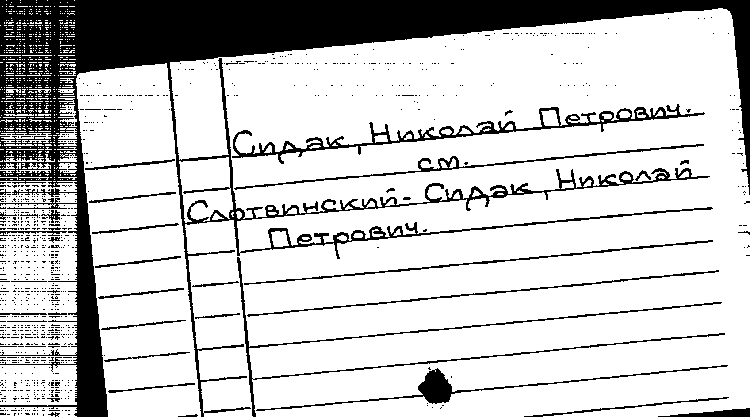 Сидак, Николай Петрович.
см.
Слотвинский-Сидак, Николай
Петрович.